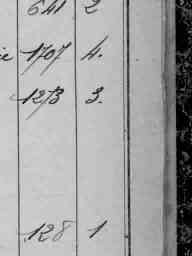 641 2
1707 4.
1273 3.
128 1